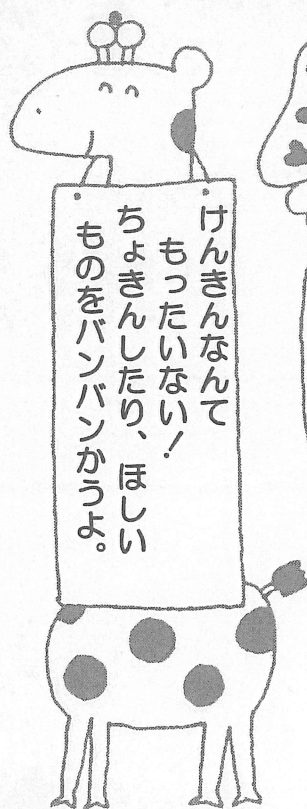 けんきんなんて
もったいない！
ちょきんしたり、ほしい
ものをバンバンかうよ。